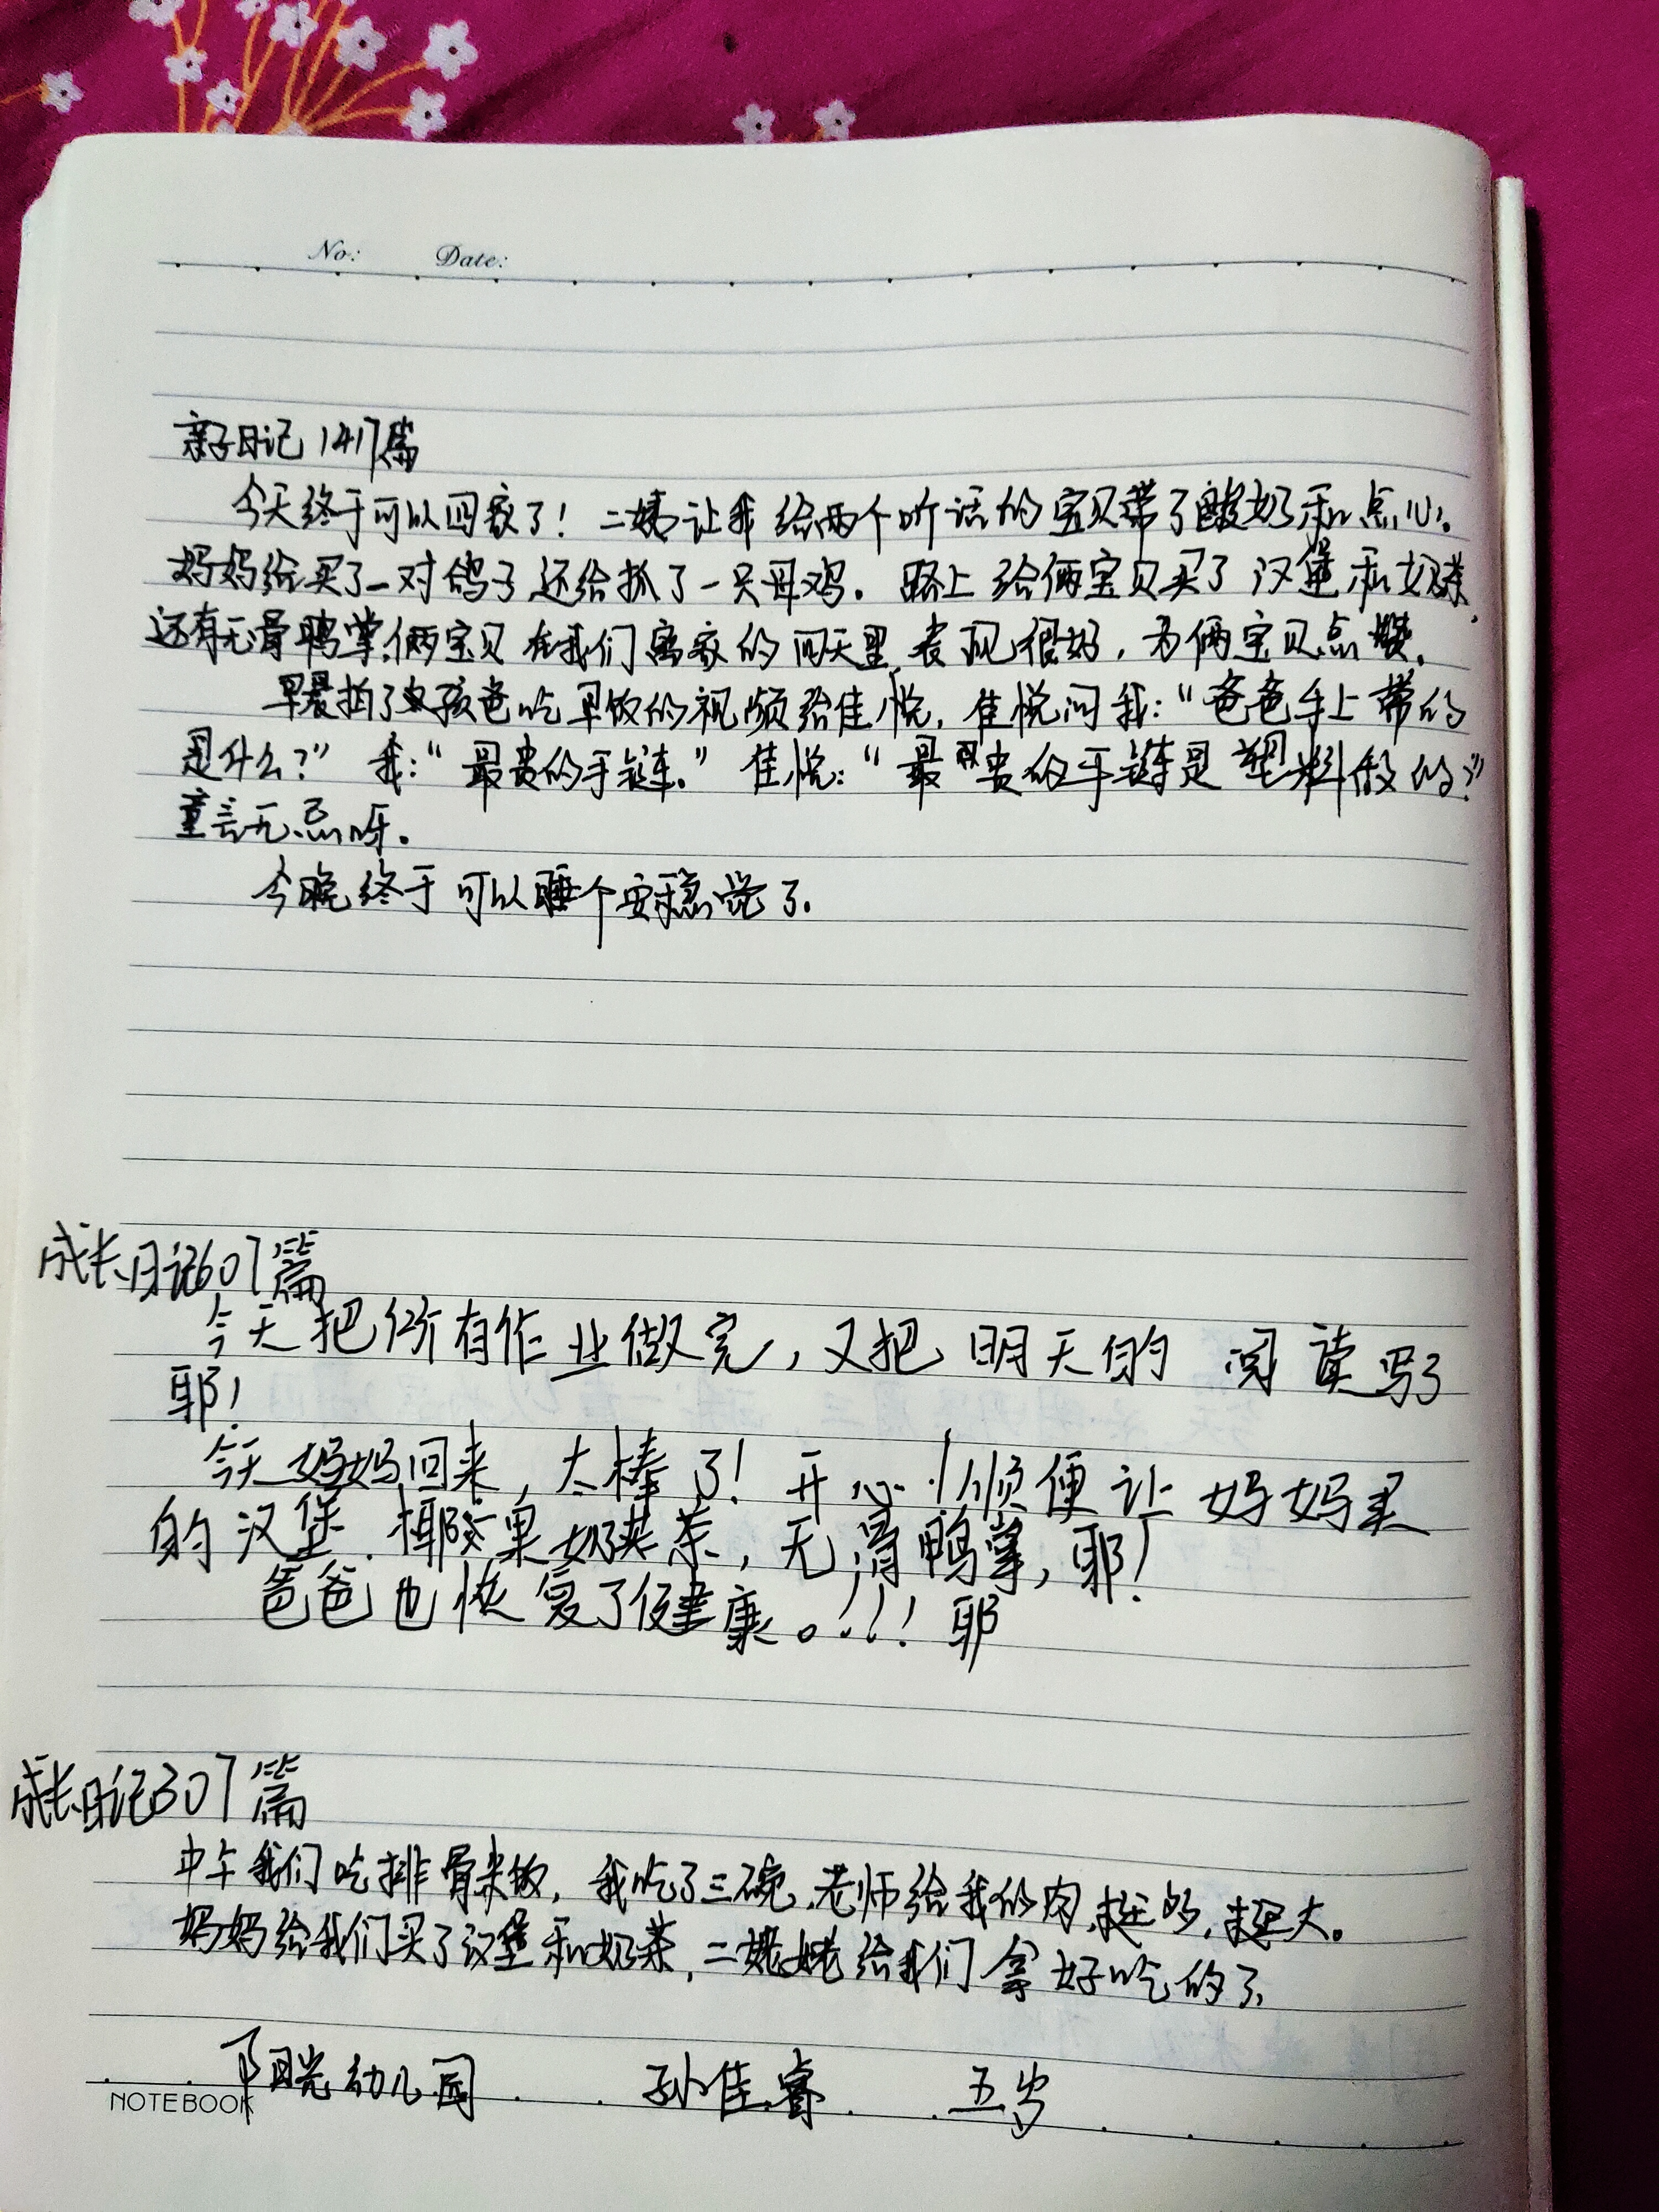 No: Date:
亲子日记1417篇
今天终于可以回家了！二姨让我给两个听话的宝贝带了酸奶和点心。
妈妈给买了一对鸽子还给抓了一只母鸡。路上给俩宝贝买了汉堡和奶茶，
还有无骨鸭掌，俩宝贝在我们离家的四天里，表现很好，为俩宝贝点赞。
早晨拍了孩爸吃早饭的视频给佳悦，佳悦问我：“爸爸手上带的
是什么？”我：“最贵的手链。”佳悦：“最贵的手链是塑料做的？”
童言无忌呀。
今晚终于可以睡个安稳觉了。
成长日记607篇
今天把所有作业做完，又把明天的阅读写了
耶！
今天妈妈回来，太棒了！开心！顺便让妈妈买
的汉堡、椰果奶茶，无骨鸭掌，耶！
爸爸也恢复了健康。！！！耶
成长日记307篇
中午我们吃排骨米饭，我吃了三碗，老师给我的肉，挺多，挺大。
妈妈给我们买了汉堡和奶茶，二姥姥给我们拿好吃的了。
阳光幼儿园 孙佳睿 五岁
NOTEBOOK